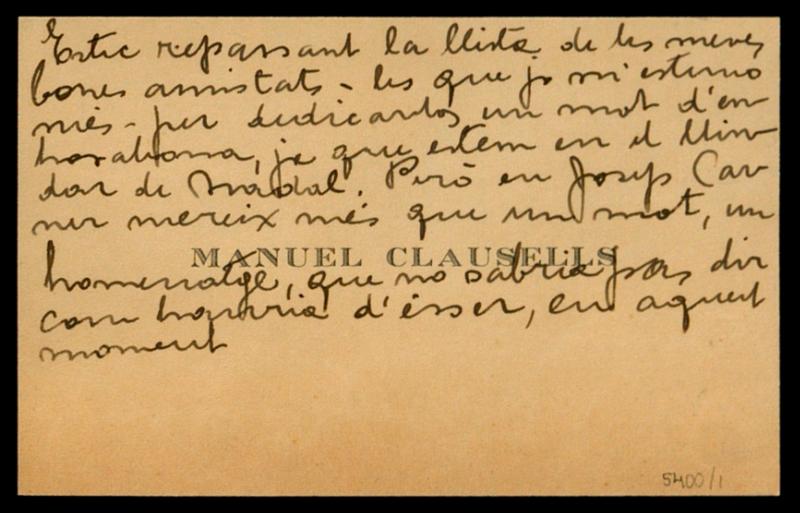 Estic repassant la llista de les meves
bones amistats - les que jo m'estimo
més - per dedicar-los un mot d'en-
horabona, ja que estem en el llin-
dar de Nadal. Però en Josep Car-
ner mereix més que un mot, un
MANUEL CLAUSELLS
homenatge, que no sabria pas dir
com hauria d'ésser, en aquest
moment
5400/1